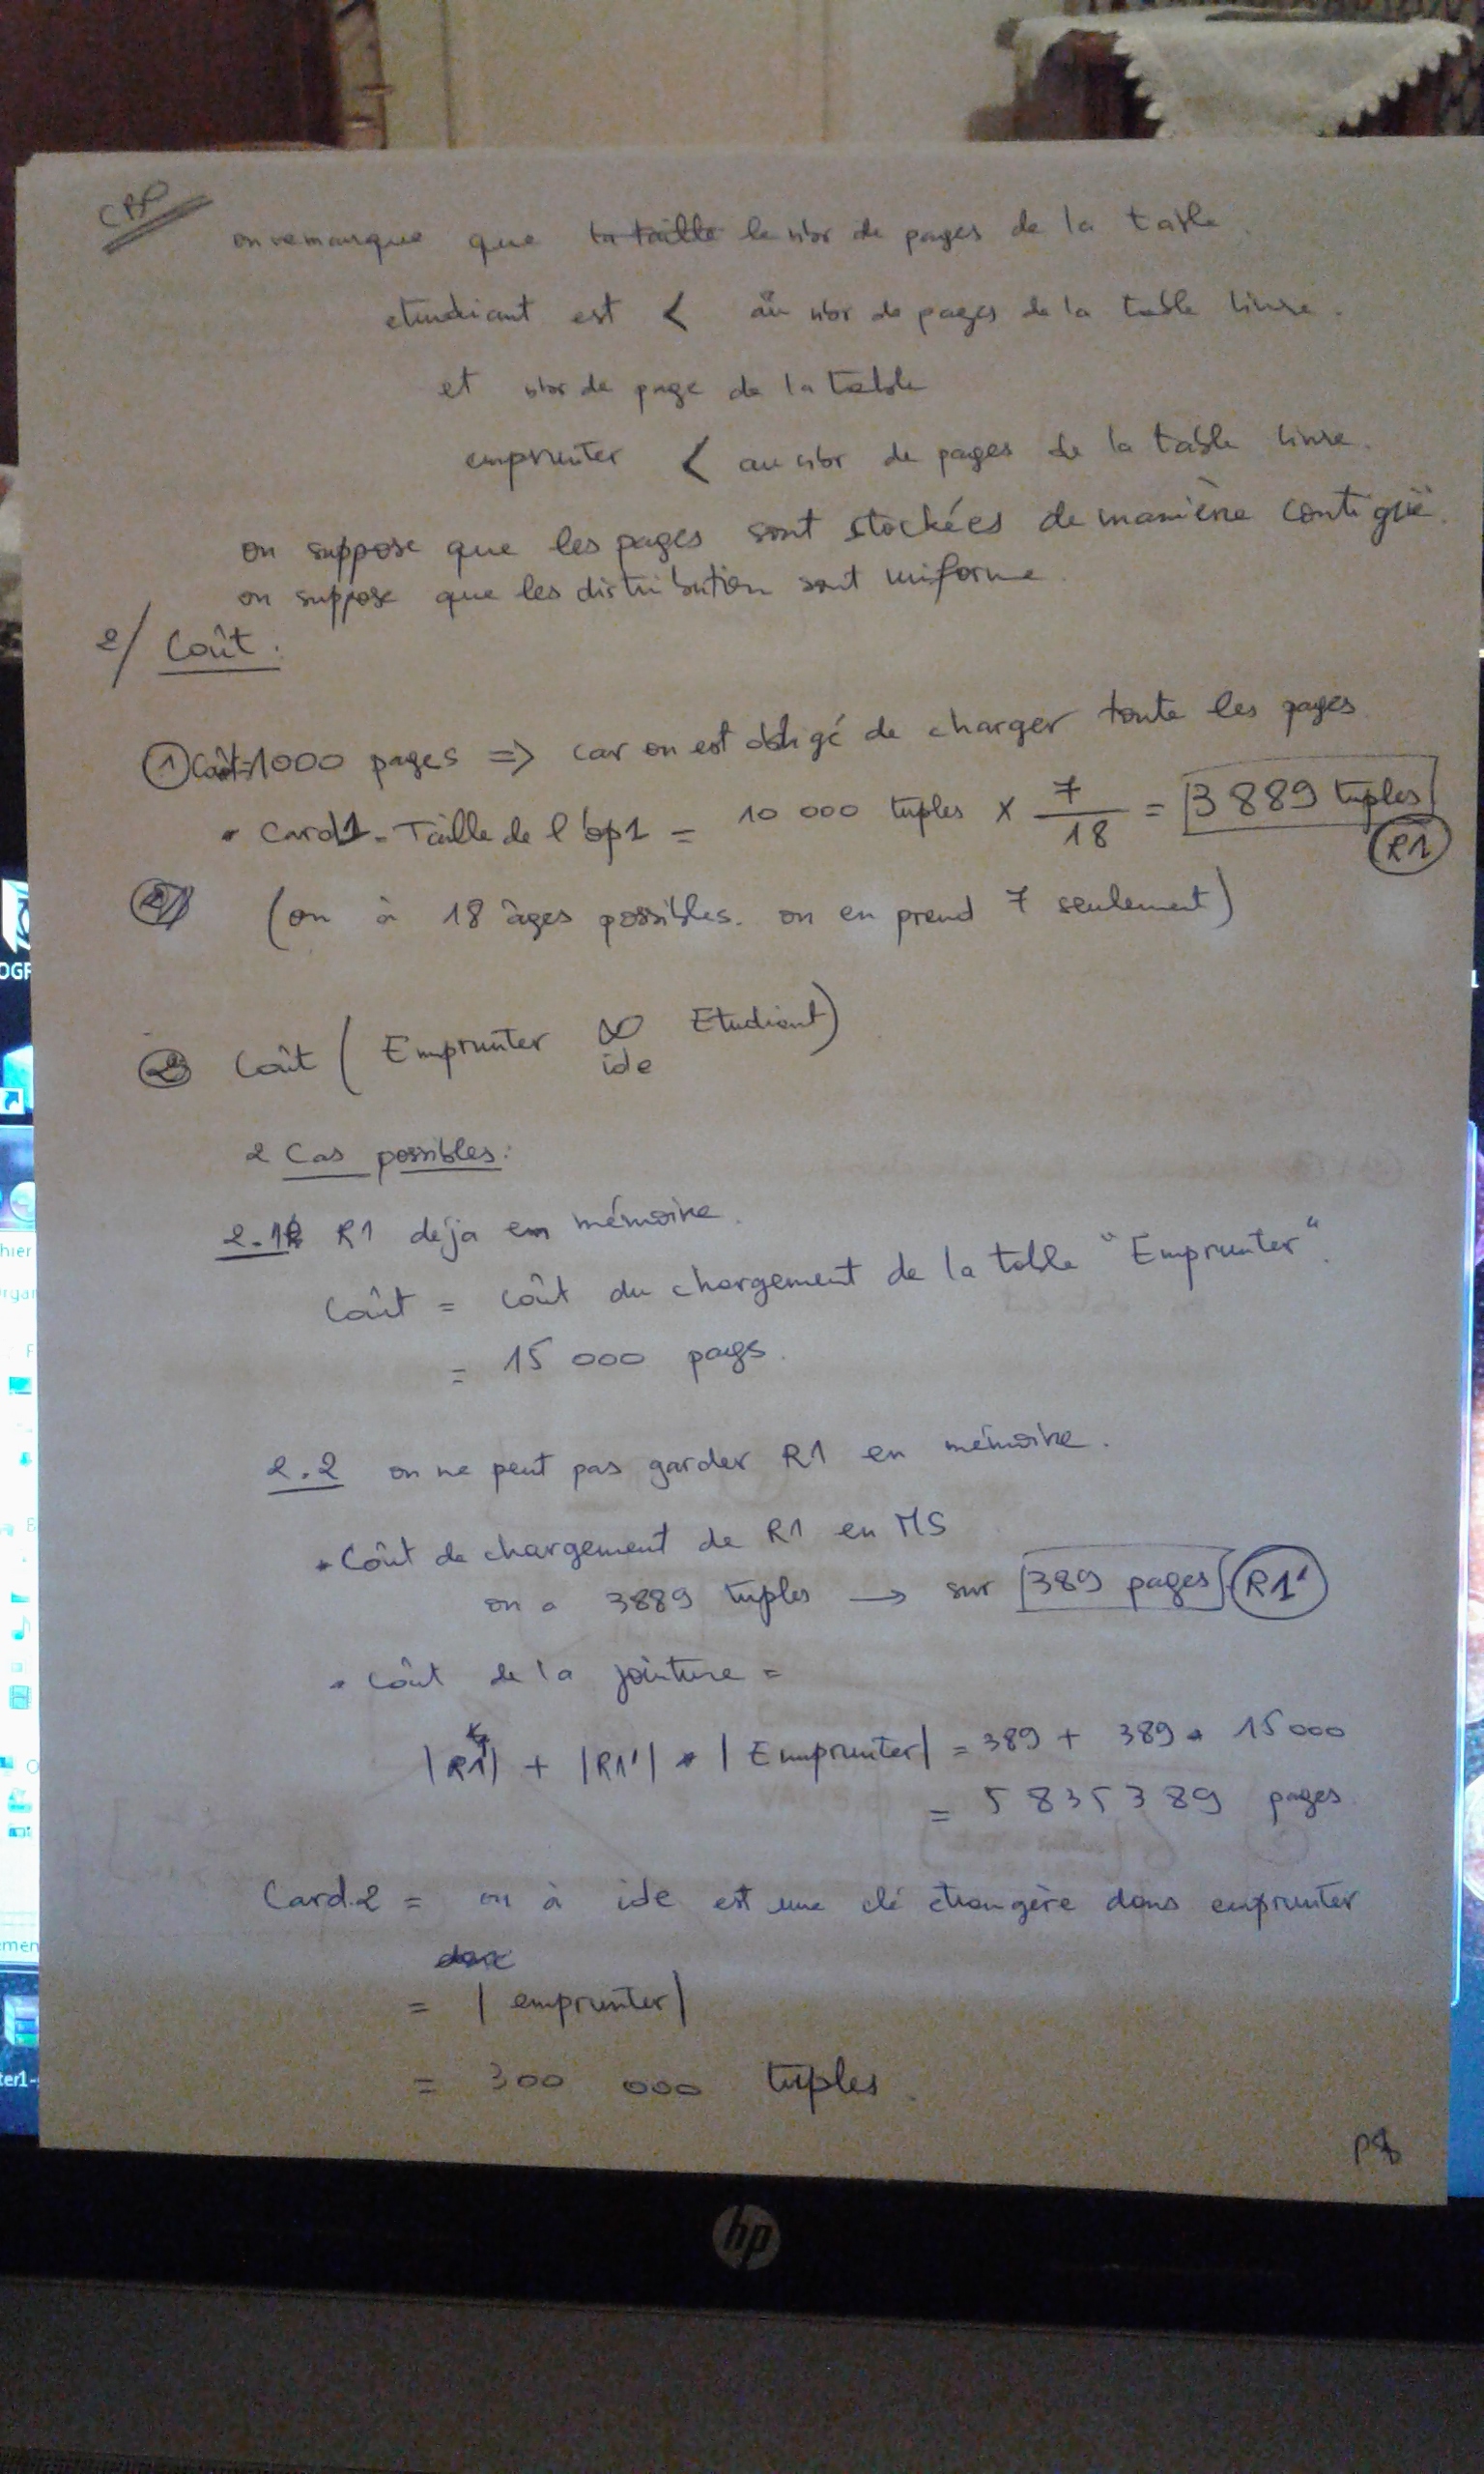 on remarque que la taille le nbr de pages de la table
etudiant est < au nbr de pages de la table livre.
et nbr de page de la table
emprunter < au nbr de pages de la table livre.
on suppose que les pages sont stockées de manière contigüe.
on suppose que les distribution sont uniforme.
2/ Coût :
① Coût=1000 pages => car on est obligé de charger toute les pages
• Card1 - Taille de l'op1 = 10 000 tuples x 7/18 = 3889 tuples
R1
(on à 18 âges possibles. on en prend 7 seulement)
② Coût ( Emprunter ∞ Etudiant)
ide
2 Cas possibles:
2.1 R1 déja en mémoire.
Coût = coût du chargement de la table "Emprunter".
= 15 000 pags.
2.2 on ne peut pas garder R1 en mémoire.
• Coût de chargement de R1 en MS
on a 3889 tuples → sur 389 pages R1'
• Coût de la jointure =
|R1'| + |R1'| * | Emprunter| = 389 + 389 * 15000
= 5835389 pages
Card.2 = on à ide est une clé étrangère dans emprunter
donc
= | emprunter|
= 300 000 tuples.
P8
hp